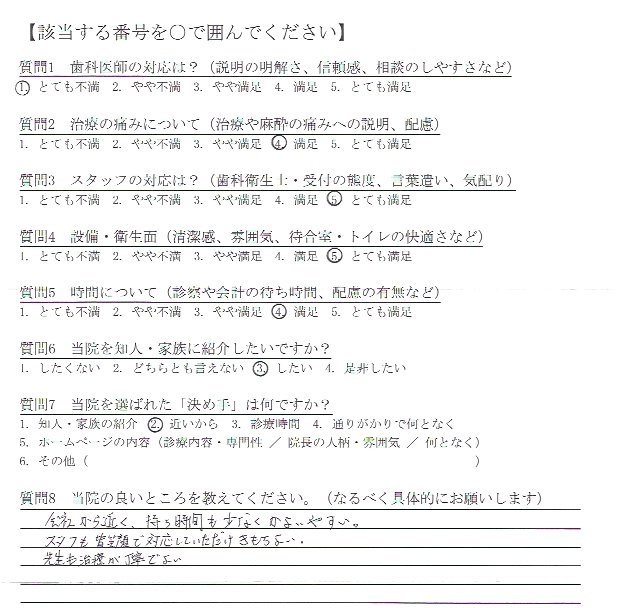 【該当する番号を○で囲んでください】
質問1　歯科医師の対応は？（説明の明解さ、信頼感、相談のしやすさなど）
1. とても不満　2. やや不満　3. やや満足　4. 満足　5. とても満足
質問2　治療の痛みについて（治療や麻酔の痛みへの説明、配慮）
1. とても不満　2. やや不満　3. やや満足　4. 満足　5. とても満足
質問3　スタッフの対応は？（歯科衛生士・受付の態度、言葉遣い、気配り）
1. とても不満　2. やや不満　3. やや満足　4. 満足　5. とても満足
質問4　設備・衛生面（清潔感、雰囲気、待合室・トイレの快適さなど）
1. とても不満　2. やや不満　3. やや満足　4. 満足　5. とても満足
質問5　時間について（診察や会計の待ち時間、配慮の有無など）
1. とても不満　2. やや不満　3. やや満足　4. 満足　5. とても満足
質問6　当院を知人・家族に紹介したいですか？
1. したくない　2. どちらとも言えない　3. したい　4. 是非したい
質問7　当院を選ばれた「決め手」は何ですか？
1. 知人・家族の紹介　2. 近いから　3. 診療時間　4. 通りがかりで何となく
5. ホームページの内容（診療内容・専門性 ／ 院長の人柄・雰囲気 ／ 何となく）
6. その他（　　　　　　　　　　）
質問8　当院の良いところを教えてください。（なるべく具体的にお願いします）
会社から近く、待ち時間も少なくかよいやすい。
スタフも皆笑顔で対応していただけきもちよい.
先生も治療が丁寧でよい